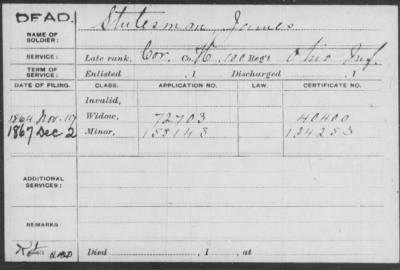 DEAD.
NAME OF SOLDIER: Stutesman, James
SERVICE: Late rank, Cor. Co. K, 100 Reg't Ohio Inf.
TERM OF SERVICE: Enlisted , 1 Discharged , 1
DATE OF FILING. CLASS. APPLICATION NO. LAW. CERTIFICATE NO.
Invalid,
1864 Nov. Widow, 72703 40400
1867 Dec 2 Minor, 155143 124253
ADDITIONAL SERVICES:
REMARKS:
Died , 1 , at